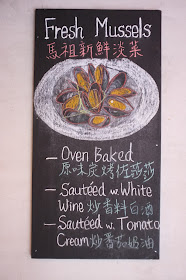 Fresh Mussels
馬祖新鮮淡菜
– Oven Baked
原味炭烤佐莎莎
– Sautéed w. White
Wine 炒香料白酒
– Sautéed w. Tomato
Cream 炒蕃茄奶油